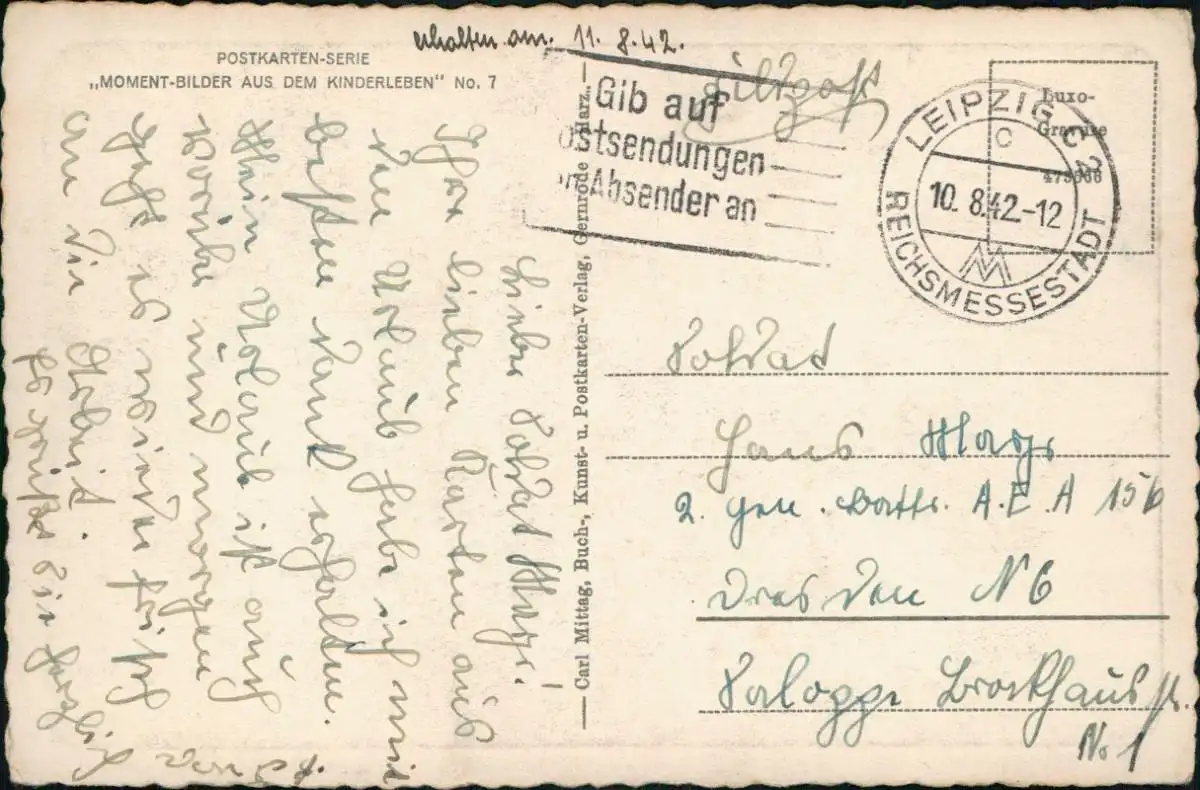 erhalten am. 11. 8. 42.
POSTKARTEN-SERIE
„MOMENT-BILDER AUS DEM KINDERLEBEN" No. 7
Feldpost
Gib auf
Postsendungen
Absender an
LEIPZIG C 2
C
10. 8.42.-12
REICHSMESSESTADT
Luxo-
Gravure
Lieber Soldat Hans!
Ihre lieben Karten aus
den Urlaub habe ich mit
besten Dank erhalten.
Mein Urlaub ist auch
vorüber und morgen
geht es wieder frisch
an die Arbeit.
Es grüßt Sie herzlich
— Carl Mittag, Buch-, Kunst- u. Postkarten-Verlag, Gernrode Harz. —
Soldat
Hans
2. Gen. Battr. A.E.A 156
Dresden N 6
Brockhaus str.
No 1